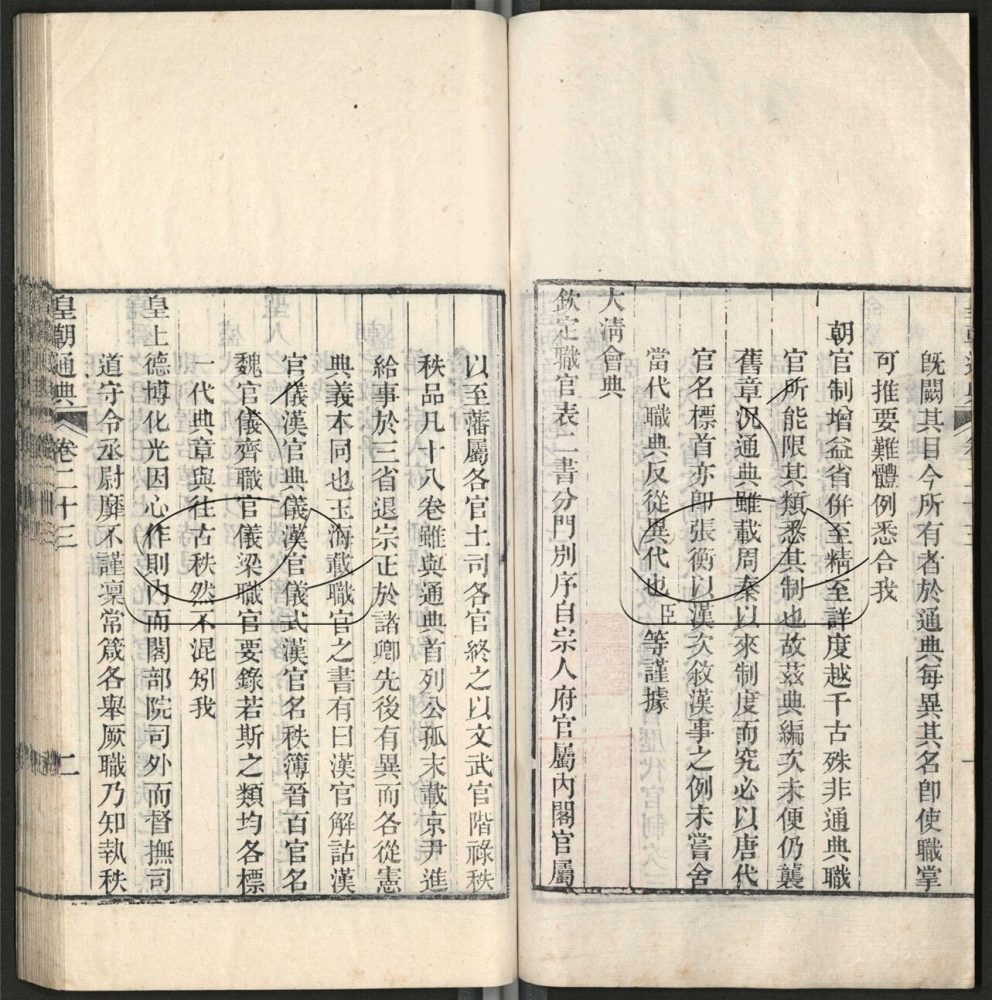 既闕其目今所有者於通典每異其名卽使職掌
可推要難體例悉合我
朝官制增益省併至精至詳度越千古殊非通典職
官所能限其類悉其制也故茲典編次未便仍襲
舊章況通典雖載周秦以來制度而究必以唐代
官名標首亦卽張衡以漢次敘漢事之例未嘗舍
當代職典反從異代也臣等謹據
大淸會典
欽定職官表二書分門別序自宗人府官屬內閣官屬
以至藩屬各官土司各官終之以文武官階祿秩
秩品凡十八卷雖與通典首列公孤末載京尹進
給事於三省退宗正於諸卿先後有異而各從憲
典義本同也玉海載職官之書有曰漢官解詁漢
官儀漢官典儀漢官儀式漢官名秩簿晉百官名
魏官儀齊職官儀梁職官要錄若斯之類均各標
一代典章與往古秩然不混矧我
皇上德博化光因心作則內而閣部院司外而督撫司
道守令丞尉靡不謹凜常箴各舉厥職乃知執秩
皇朝通典 卷二十三 二